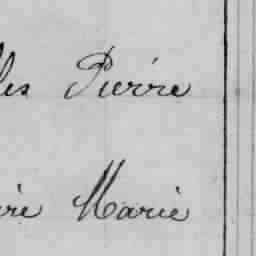 les Pierre
ire Marie